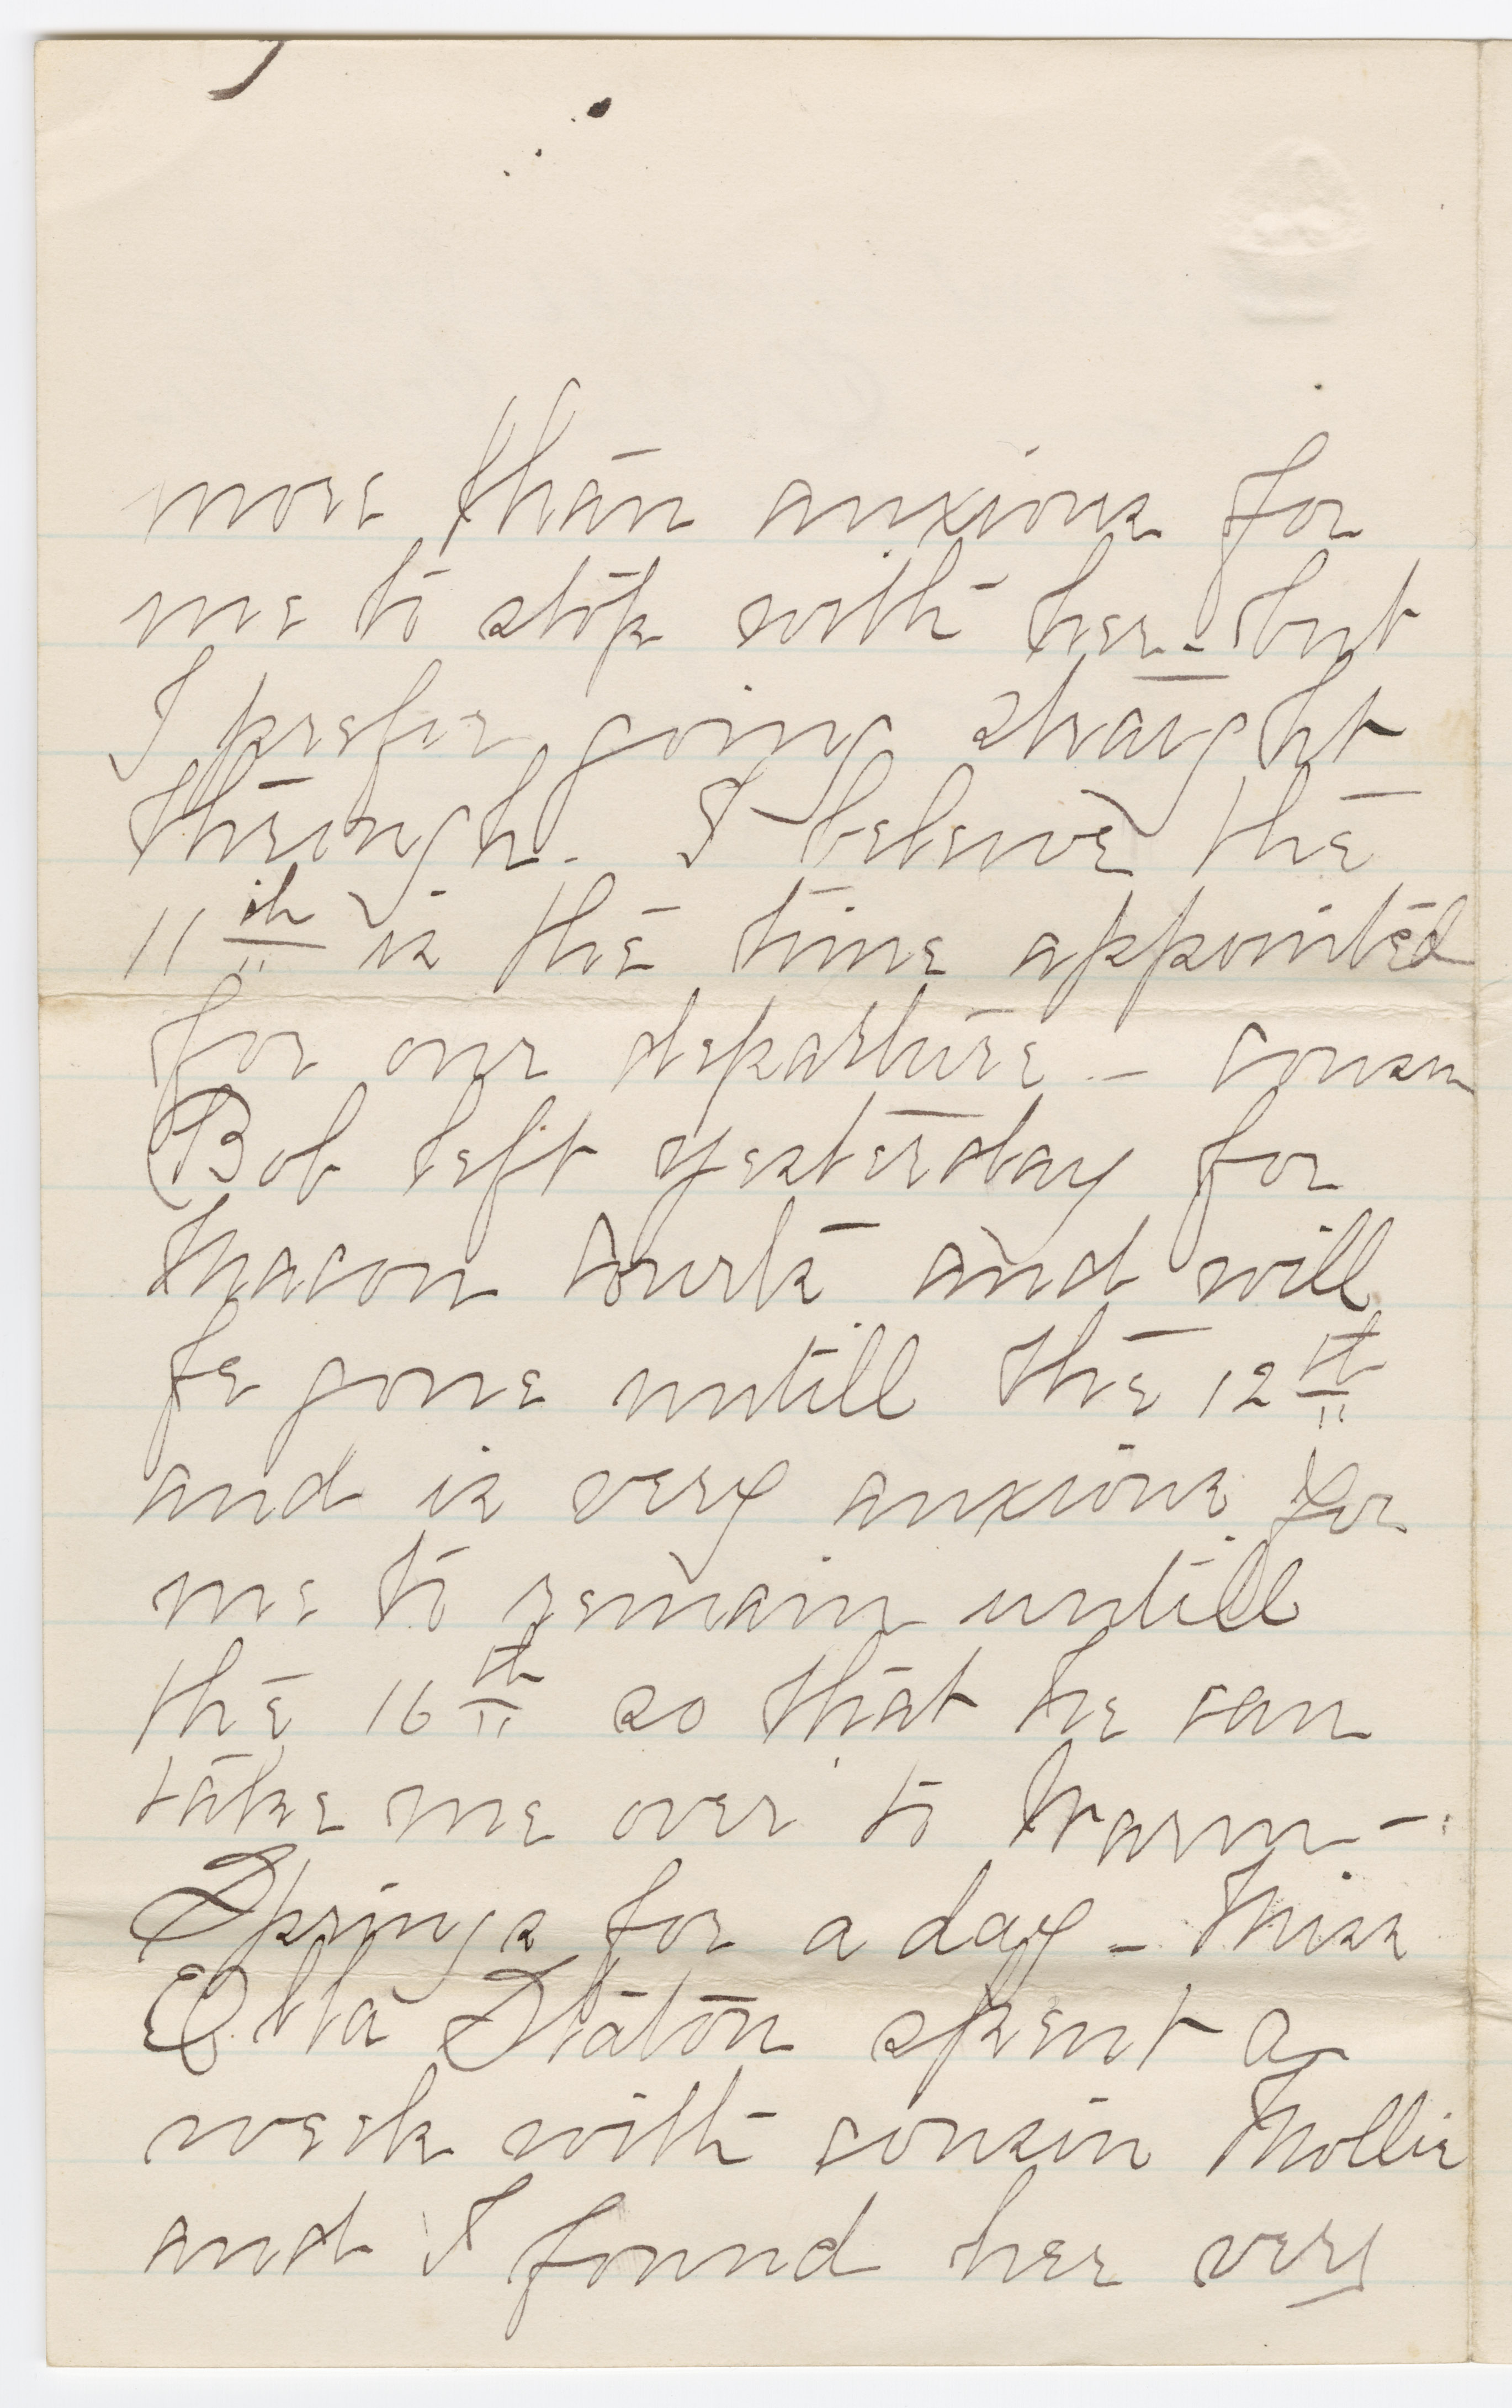 more than anxious for
me to stop with her - but
I prefer going straight
through. I beleive the
11th is the time appointed
for our departure - cousin
Bob left yesterday for
Macon Court and will
be gone untill the 12th
and is very anxious for
me to remain untill
the 16th so that he can
take me over to Warm -
Springs for a day - Miss
Etta Staton spent a
week with cousin Mollie
and I found her very